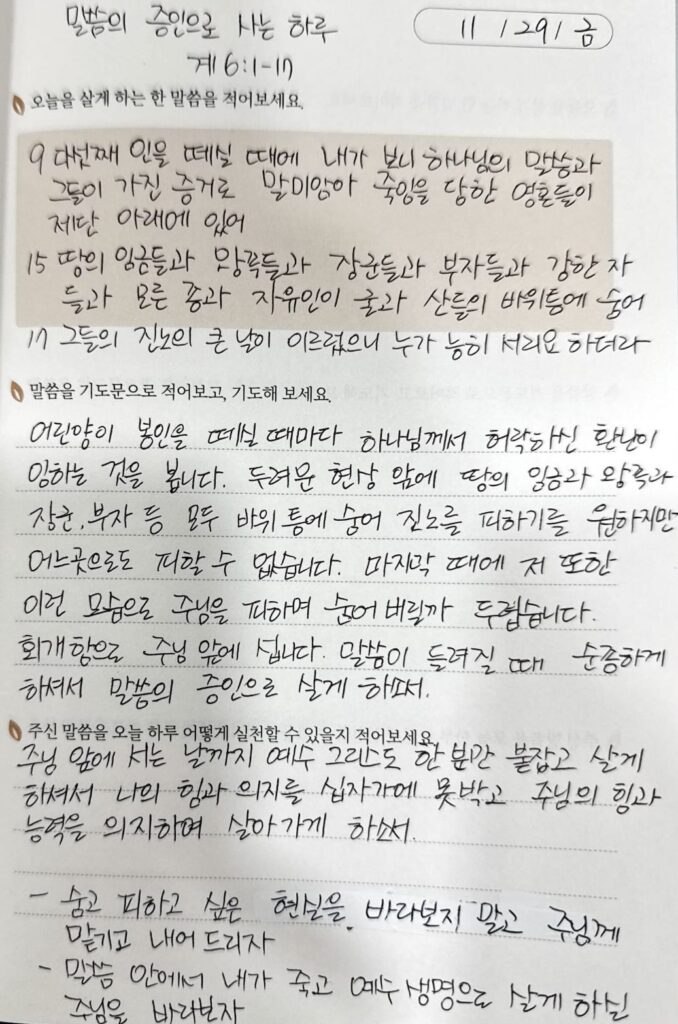 말씀의 증인으로 사는 하루
11 / 29 / 금
계 6:1-17
오늘을 살게 하는 한 말씀을 적어보세요.
9 다섯째 인을 떼실 때에 내가 보니 하나님의 말씀과
그들이 가진 증거로 말미암아 죽임을 당한 영혼들이
제단 아래에 있어
15 땅의 임금들과 왕족들과 장군들과 부자들과 강한 자
들과 모든 종과 자유인이 굴과 산들의 바위틈에 숨어
17 그들의 진노의 큰 날이 이르렀으니 누가 능히 서리요 하더라
말씀을 기도문으로 적어보고, 기도해 보세요.
어린양이 봉인을 떼실 때마다 하나님께서 허락하신 환난이
임하는 것을 봅니다. 두려운 현상 앞에 땅의 임금과 왕족과
장군, 부자 등 모두 바위 틈에 숨어 진노를 피하기를 원하지만
어느곳으로도 피할 수 없습니다. 마지막 때에 저 또한
이런 모습으로 주님을 피하며 숨어 버릴까 두렵습니다.
회개함으로 주님 앞에 섭니다. 말씀이 들려질 때 순종하게
하셔서 말씀의 증인으로 살게 하소서.
주신 말씀을 오늘 하루 어떻게 실천할 수 있을지 적어보세요.
주님 앞에 서는 날까지 예수 그리스도 한 분만 붙잡고 살게
하셔서 나의 힘과 의지를 십자가에 못박고 주님의 힘과
능력을 의지하며 살아가게 하소서.
- 숨고 피하고 싶은 현실을 바라보지 말고 주님께
맡기고 내어 드리자
- 말씀 안에서 내가 죽고 예수 생명으로 살게 하실
주님을 바라보자